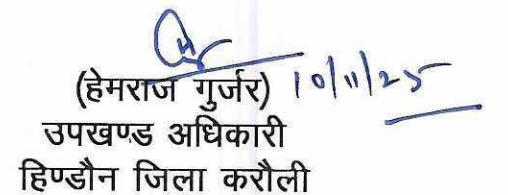 (हेमराज गुर्जर) 10/11/25
उपखण्ड अधिकारी
हिण्डौन जिला करौली